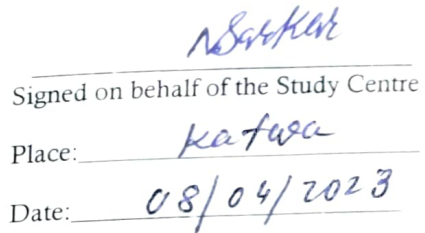 NSarkar
Signed on behalf of the Study Centre
Place: Katwa
Date: 08/04/2023